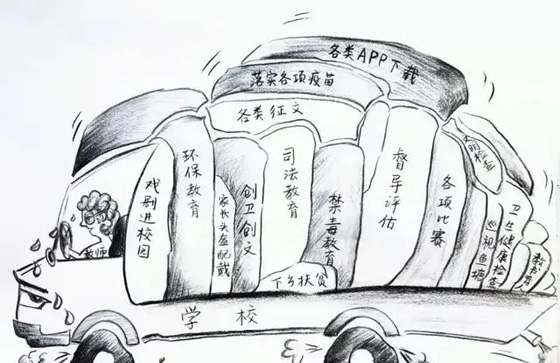 各类APP下载
落实各项疫苗
各类征文
戏剧进校园
环保教育
家长头盔配戴
创卫创文
司法教育
禁毒教育
下乡扶贫
督导评估
各项比赛
文明检查
卫生健康检查
巡视鱼塘
教书育
教师
学校